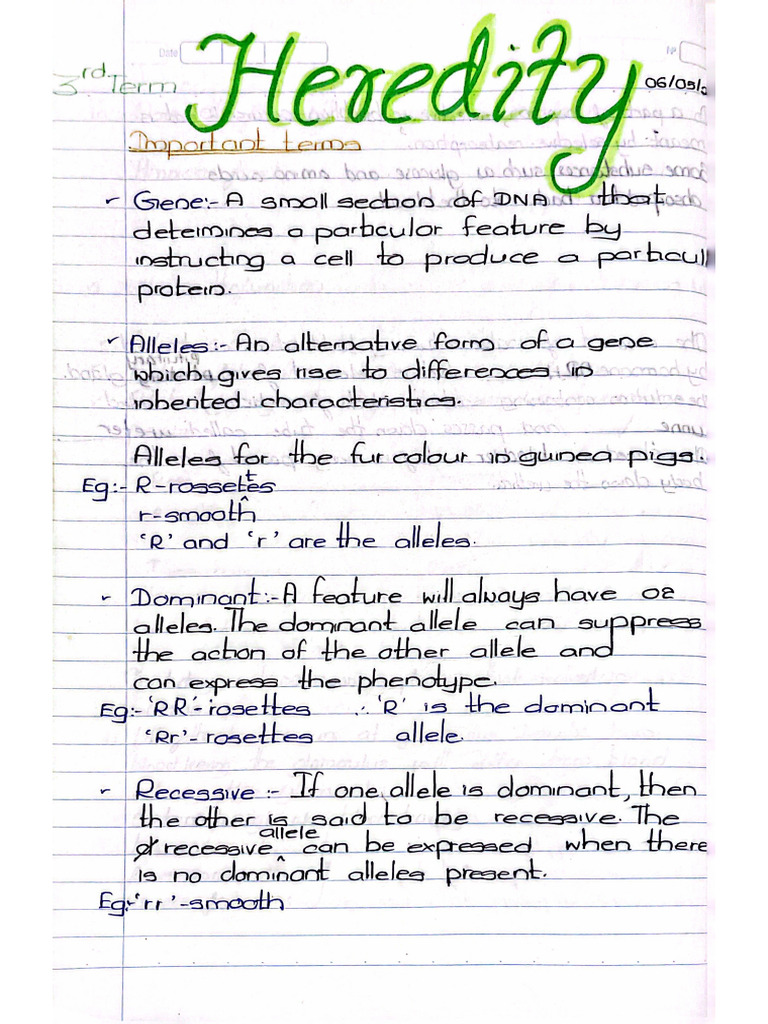 Date
Nº
Heredity
3rd Term
06/05/2
Important terms
Gene:- A small section of DNA that
determines a particular feature by
instructing a cell to produce a particul
protein.
Alleles:- An alternative form of a gene
which gives rise to differences in
inherited characteristics.
Alleles for the fur colour in guinea pigs.
Eg:- R-rossettes
r-smooth
'R' and 'r' are the alleles.
Dominant:- A feature will always have 02
alleles. The dominant allele can suppress
the action of the other allele and
can express the phenotype.
Eg:- 'RR'-rosettes ∴ 'R' is the dominant
'Rr'- rosettes allele.
Recessive :- If one allele is dominant, then
the other is said to be recessive. The
recessive allele can be expressed when there
is no dominant alleles present.
Eg:- 'rr'-smooth